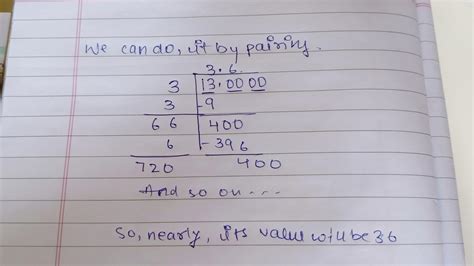 We can do, it by pairing.
3.6.
3 13.00 00
3 -9
66 400
6 -396
720 400
And so on ----
So, nearly, its value will be 36